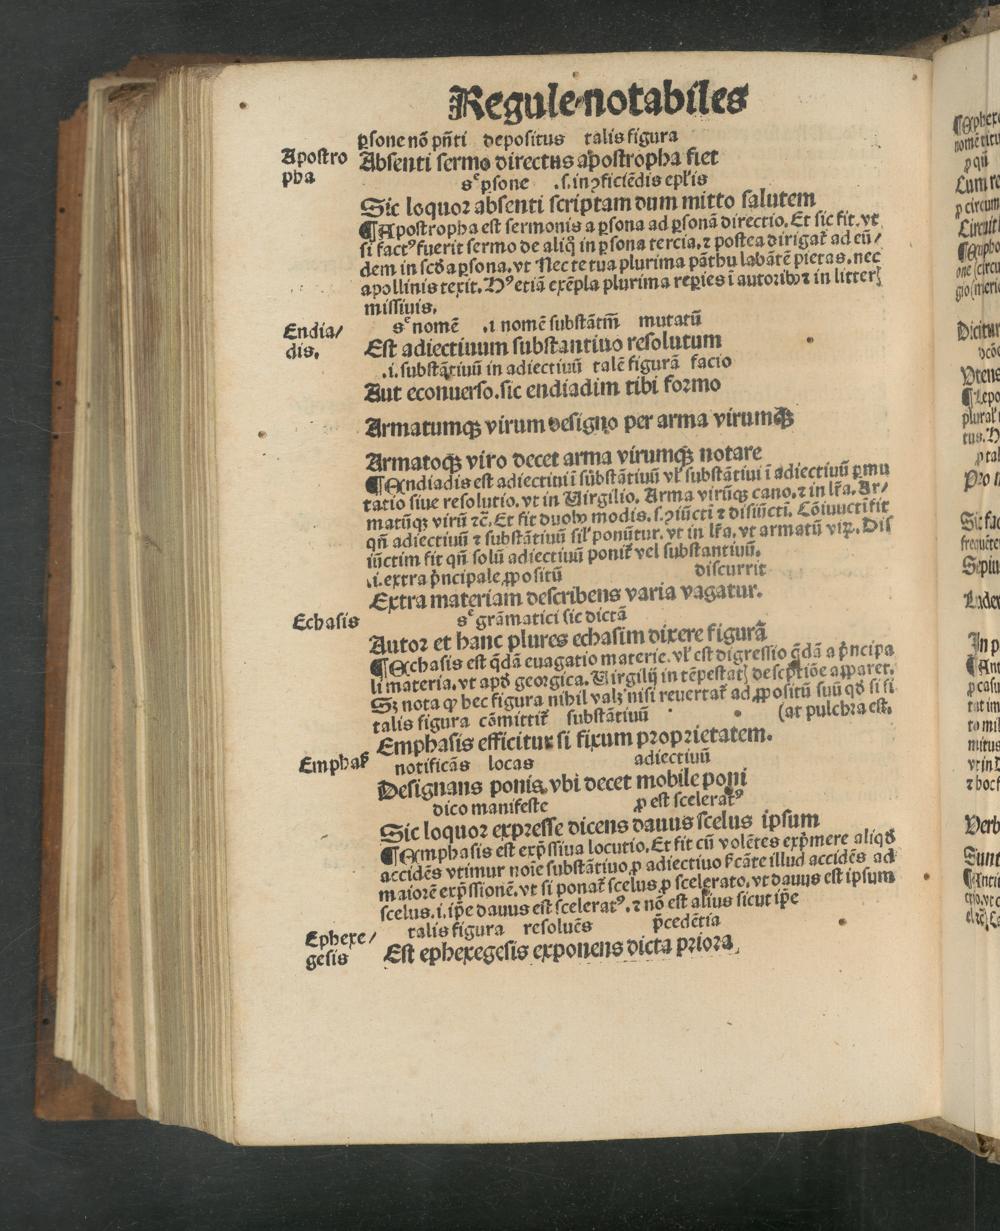 Regule notabiles
ꝑsone nõ pñti depositus talis figura
Apostro
pha
Absenti sermo directus apostropha fiet
s͛ ꝑsone .s. in ꝯficiẽdis epl̃is
Sic loquor absenti scriptam dum mitto salutem
¶Apostropha est sermonis a ꝑsona ad ꝑsonã directio. Et sic fit. vt
si factꝰ fuerit sermo de aliq̃ in ꝑsona tercia. ⁊ postea dirigat̃ ad eũ/
dem in scd̃a ꝑsona. vt Nec te tua plurima pãthu labãtẽ pietas. nec
apollinis texit. Hꝰ etiã exẽpla plurima reꝑies ĩ autoribꝫ ⁊ in litterꝭ
missiuis.
Endia/
dis.
s͛ nomẽ .i nomẽ substãtm̃ mutatũ
Est adiectiuum substantiuo resolutum
.i. substãtiuũ in adiectiuũ talẽ figurã facio
Aut econuerso. sic endiadim tibi formo
Armatumqꝫ virum designo per arma virumqꝫ
Armatoqꝫ viro decet arma virumqꝫ notare
¶Endiadis est adiectiui ĩ substãtiuũ vl̃ substãtiui ĩ adiectiuũ ꝑmu
tatio siue resolutio. vt in Virgilio. Arma virũqꝫ cano. ⁊ in lr̃a. Ar/
matũqꝫ virũ ⁊c̃. Et fit duobꝫ modis. s. ꝯiũcti ⁊ disiũcti. Cõiuucti fit
qñ adiectiuũ ⁊ substãtiuũ sil̃ ponũtur. vt in lr̃a. vt armatũ viꝝ. Dis
iũctim fit qñ solũ adiectiuũ ponit̃ vel substantiuũ.
.i. extra p̃ncipale ꝓpositũ discurrit
Extra materiam describens varia vagatur.
Echasis
s͛ grãmatici sic dictã
Autor et hanc plures echasim dixere figurã
¶Echasis est q̃dã euagatio materie. vl̃ est digressio q̃dã a p̃ncipa
li materia. vt apd̃ georgica. Virgilij in tẽpestatꝭ desc̃ptiõe apparet.
Sꝫ nota ꝙ hec figura nihil valꝫ nisi reuertat̃ ad ꝓpositũ suũ qd̃ si fi
talis figura cõmittit̃ substãtiuũ (at pulchra est.
Emphasis efficitur si fixum proprietatem.
Emphas̃
notificãs locas adiectiuũ
Designans ponis, vbi decet mobile poni
dico manifeste ꝓ est sceleratꝰ
Sic loquor expresse dicens dauus scelus ipsum
¶Emphasis est exp̃ssiua locutio. Et fit cũ volẽtes exp̃mere aliqd̃
accidẽs vtimur noĩe substãtiuo ꝓ adiectiuo s̃cãte illud accidẽs ad
maiorẽ exp̃ssionẽ. vt si ponat̃ scelus ꝓ scelerato. vt dauus est ipsum
scelus. i. ip̃e dauus est sceleratꝰ. ⁊ nõ est alius sicut ip̃e
Ephexe/
gesis
talis figura resoluẽs p̃cedẽtia
Est ephexegesis exponens dicta priora.